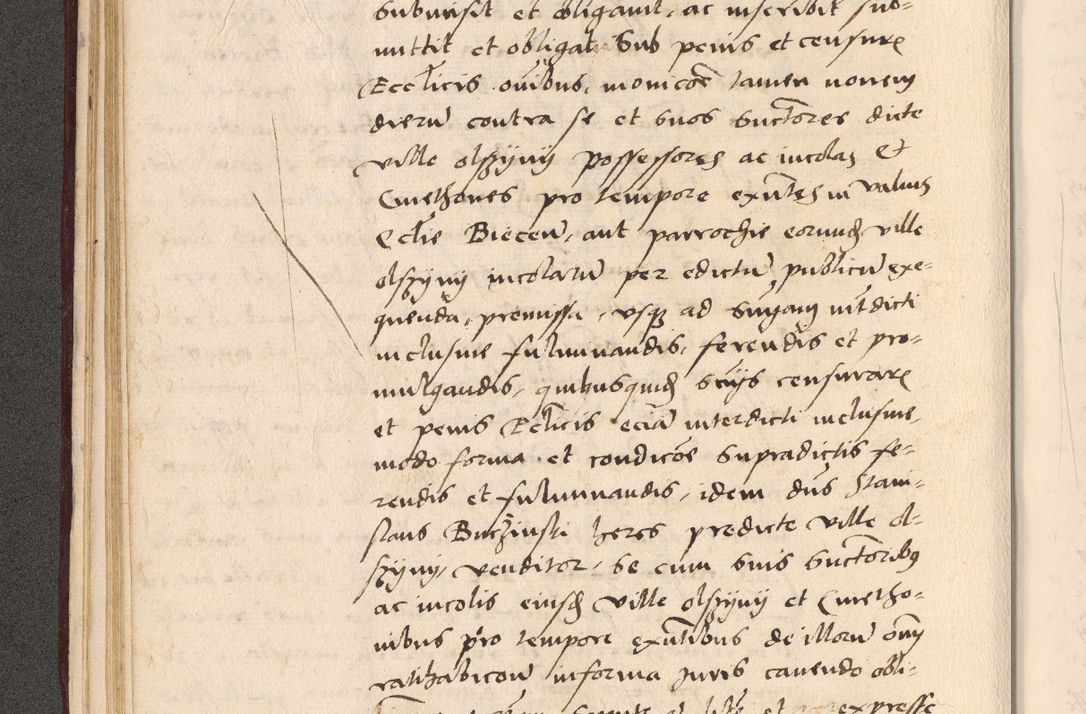 submisit et obligavit, ac inscribit sub-
mittit et obligat Sub penis et censure
Ecclicis oibus, monicoe tamen novem
dierum contra se et suos Suctores dicte
ville olszyny possessores ac incolas Et
Cmethones pro tempore exntes in valvis
Eclie Biecen, aut parrochie eorundem ville
olszyny incolarum per edictum publicum exe-
quenda, premissa, usque ad Suam intdicti
inclusive fulminandis, ferendis et pro-
mulgandis, quibusquidem sicuis censurare
et penis Eclicis eciam interdicti inclusive,
modo forma et condicoe Supradictis fe-
rendis et fulminandis, idem dus Stani-
slaus Buczinski heres predicte ville ol-
szyny, venditor, Se cum Suis Suctoribus
ac incolis eiusdem ville olszynij et Cmetho-
nibus pro tempore exntibus de illorum omni
ratihabicone informa Juris cavendo obli-
expresse